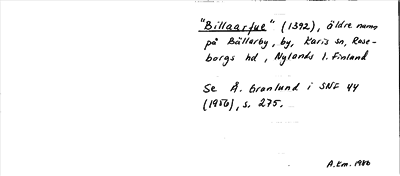 "Billaarfue" (1392), äldre namn
på Bällarby, by, Karis sn, Rase-
borgs hd, Nylands l. Finland
Se Å. Granlund i SNF 44
(1956), s. 275.
A.Em. 1980